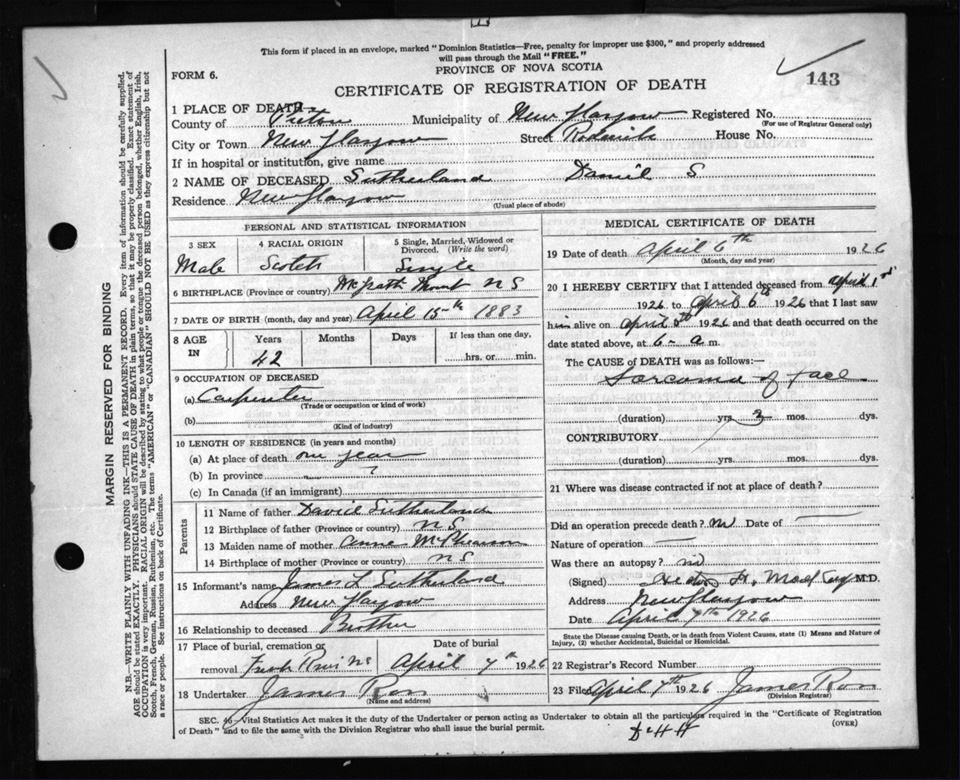 This form if placed in an envelope, marked "Dominion Statistics—Free, penalty for improper use $300," and properly addressed
will pass through the Mail "FREE."
PROVINCE OF NOVA SCOTIA
FORM 6.
143
CERTIFICATE OF REGISTRATION OF DEATH
1 PLACE OF DEATH
County of Pictou Municipality of New Glasgow Registered No.
(For use of Registrar General only)
City or Town New Glasgow Street Roderick House No.
If in hospital or institution, give name
2 NAME OF DECEASED Sutherland Daniel S
Residence New Glasgow
(Usual place of abode)
PERSONAL AND STATISTICAL INFORMATION
3 SEX 4 RACIAL ORIGIN 5 Single, Married, Widowed or
Divorced. (Write the word)
Male Scotch Single
6 BIRTHPLACE (Province or country) McGrath Mount N S
7 DATE OF BIRTH (month, day and year) April 15th 1883
8 AGE IN Years Months Days If less than one day,
42 hrs. or min.
9 OCCUPATION OF DECEASED
(a) Carpenter
(Trade or occupation or kind of work)
(b)
(Kind of industry)
10 LENGTH OF RESIDENCE (in years and months)
(a) At place of death one year
(b) In province ?
(c) In Canada (if an immigrant)
Parents
11 Name of father David Sutherland
12 Birthplace of father (Province or country) N S
13 Maiden name of mother Anne McPherson
14 Birthplace of mother (Province or country) N S
15 Informant's name James L Sutherland
Address New Glasgow
16 Relationship to deceased Brother
17 Place of burial, cremation or Date of burial
removal NS April 7th 1926
18 Undertaker James Ross
(Name and address)
MEDICAL CERTIFICATE OF DEATH
19 Date of death April 6th 1926
(Month, day and year)
20 I HEREBY CERTIFY that I attended deceased from April 1st
1926 to April 6th 1926 that I last saw
him alive on April 5th 1926 and that death occurred on the
date stated above, at 6- a m.
The CAUSE of DEATH was as follows:—
Sarcoma of face
(duration) yrs. 3 mos. dys.
CONTRIBUTORY
(duration) yrs. mos. dys.
21 Where was disease contracted if not at place of death?
Did an operation precede death? No Date of
Nature of operation
Was there an autopsy? no
(Signed) M.D.
Address New Glasgow
Date April 7th 1926
State the Disease causing Death, or in death from Violent Causes, state (1) Means and Nature of
Injury, (2) whether Accidental, Suicidal or Homicidal.
22 Registrar's Record Number
23 Filed April 7th 1926 James Ross
(Division Registrar)
SEC. 46 Vital Statistics Act makes it the duty of the Undertaker or person acting as Undertaker to obtain all the particulars required in the "Certificate of Registration
of Death" and to file the same with the Division Registrar who shall issue the burial permit.
(OVER)
MARGIN RESERVED FOR BINDING
N.B.—WRITE PLAINLY WITH UNFADING INK—THIS IS A PERMANENT RECORD. Every item of information should be carefully supplied.
AGE should be stated EXACTLY. PHYSICIANS should STATE CAUSE OF DEATH in plain terms, so that it may be properly classified. Exact statement of
OCCUPATION is very important. RACIAL ORIGIN will be described by stating to what people or tongue the deceased person belonged, whether English, Irish,
Scotch, French, German, Russian, Ruthenian, etc. The terms "AMERICAN" or "CANADIAN" SHOULD NOT BE USED as they express citizenship but not
a race or people. See instructions on back of Certificate.